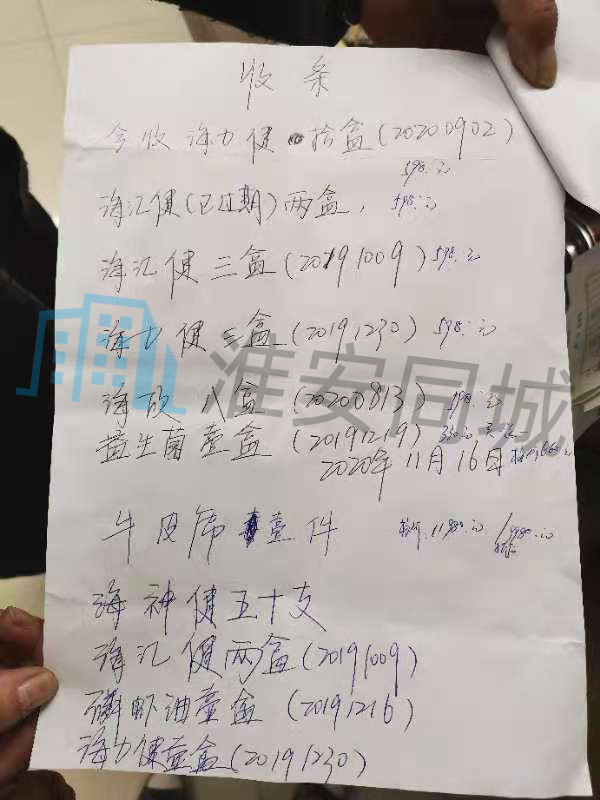 收条
今收海力健拾盒(20200902)
598.元
海汇健(已过期)两盒, 598.元
海汇健三盒(20191009) 598.元
海力健三盒(20191230) 598.元
海欣八盒 (20200813) 198.元
益生菌壹盒 (20191219)
2020年11月16日
牛皮席壹件 11980.元
海神健五十支
海汇健两盒(20191009)
磷虾油壹盒 (20191216)
海力健壹盒(20191230)
淮安同城